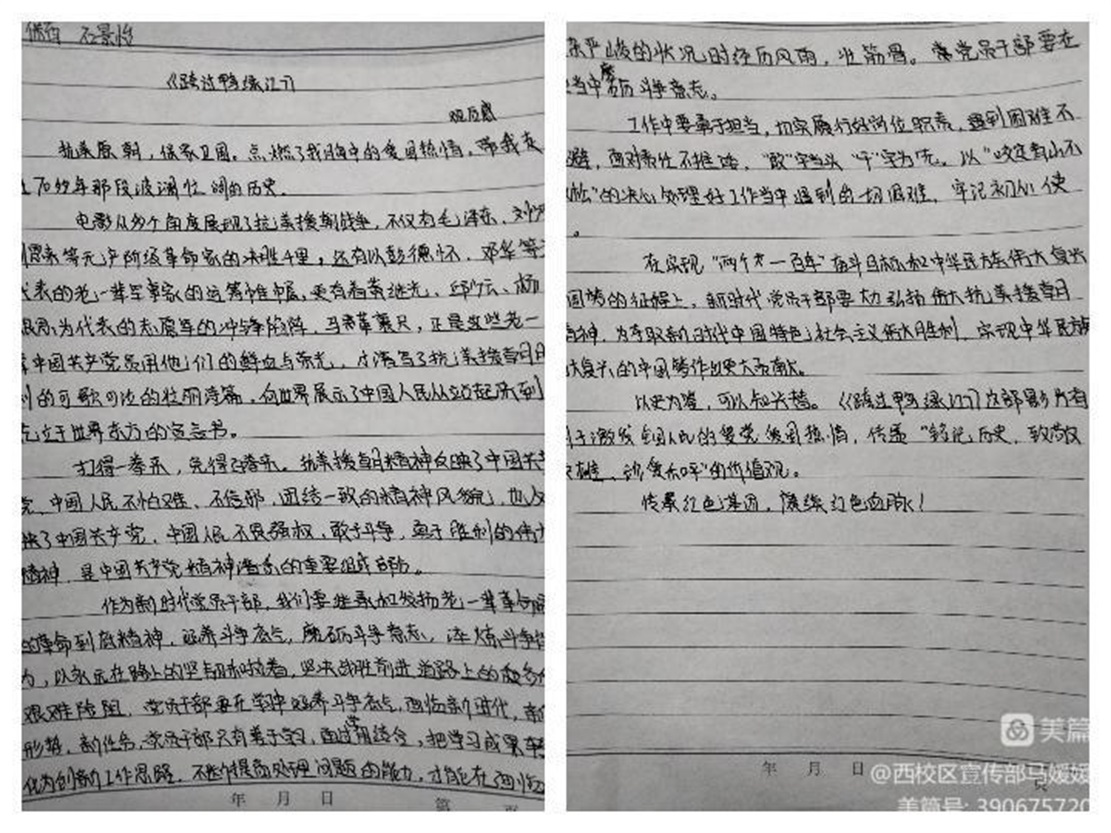 保育 石景怡
《跨过鸭绿江》
观后感
抗美援朝,保家卫国。点燃了我胸中的爱国热情,带我走
70多年那段波澜壮阔的历史。
电影从多个角度展现了抗美援朝战争,不仅有毛泽东、刘少
恩来等无产阶级革命家的决胜千里,还有以彭德怀、邓华等
代表的老一辈军事家的运筹帷幄,更有着黄继光、邱少云、杨
根思为代表的志愿军的冲锋陷阵,马革裹尸,正是这些老一
中国共产党员用他们的鲜血与荣光,才谱写了抗美援朝
利的可歌可泣的壮丽诗篇,向世界展示了中国人民从站起来到
屹立于世界东方的宣言书。
打得一拳来,免得百拳来。抗美援朝精神反映了中国共产
党、中国人民不怕难、不信邪、团结一致的精神风貌,也
映了中国共产党、中国人民不畏强权,敢于斗争,勇于胜利的伟大
精神,是中国共产党精神谱系的重要组成部分。
作为新时代党员干部,我们要继承和发扬老一辈革命
的革命到底精神,涵养斗争底气,磨砺斗争意志,淬炼斗争
,以永远在路上的坚韧和执着,坚决战胜前进道路上的
艰难险阻。党员干部要在学中涵养斗争底气,面临新时代,新
形势,新任务,党员干部只有善于学习,,把学习成果转
化为创新工作思路,不断提高处理问题的能力,才能在面临
严峻的状况时经历风雨,壮筋骨。党员干部要在
当中磨砺斗争意志。
工作中要勇于担当,切实履行好岗位职责,遇到困难不
避,面对责任不推诿,“敢”字当头“干”字为先。以“咬定青山不
放松”的决心处理好工作当中遇到的一切困难,牢记初心使
。
在实现“两个一百年”奋斗目标和中华民族伟大复兴
国梦的征程上,新时代党员干部要大力弘扬伟大抗美援朝
精神,为夺取新时代中国特色社会主义伟大胜利、实现中华民族
大复兴的中国梦作出更大贡献。
以史为鉴,可以知兴替。《跨过鸭绿江》这部影片有
利于激发全国人民的爱党爱国热情,传递“铭记历史,致敬
英雄、珍爱和平”的价值观。
传承红色基因,赓续红色血脉!
年 月 日 第 页
年 月 日 页
美篇
@西校区宣传部马媛媛
美篇号: 390675720